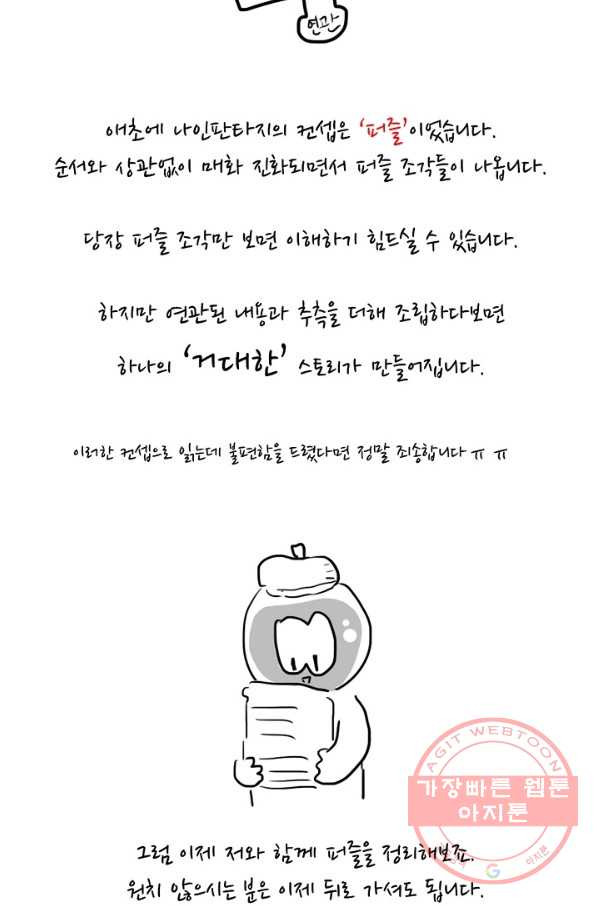 연관
애초에 나인판타지의 컨셉은 '퍼즐'이었습니다.
순서와 상관없이 매화 진화되면서 퍼즐 조각들이 나옵니다.
당장 퍼즐 조각만 보면 이해하기 힘드실 수 있습니다.
하지만 연관된 내용과 추측을 더해 조립하다보면
하나의 '거대한' 스토리가 만들어집니다.
이러한 컨셉으로 읽는데 불편함을 드렸다면 정말 죄송합니다 ㅠ ㅠ
AGIT WEBTOON
가장빠른 웹툰
아지툰
G
아지툰
그럼 이제 저와 함께 퍼즐을 정리해보죠.
원치 않으시는 분은 이제 뒤로 가셔도 됩니다.